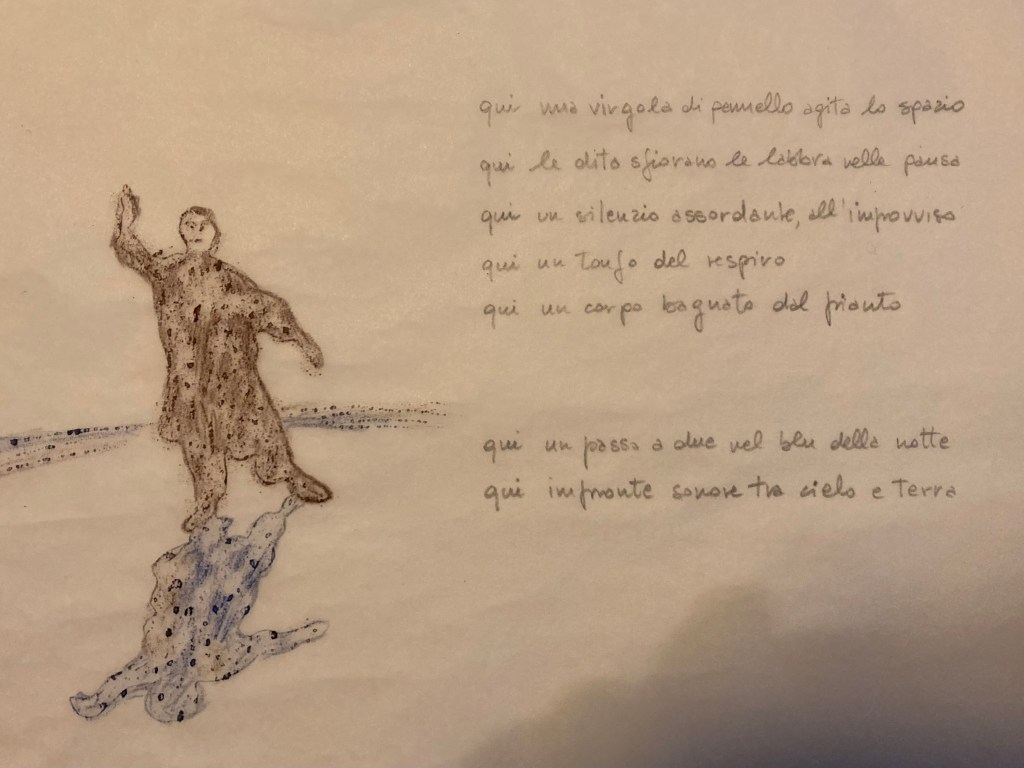 qui una virgola di pennello agita lo spazio
qui le dita sfiorano le labbra nelle pause
qui un silenzio assordante, all'improvviso
qui un tonfo del respiro
qui un corpo bagnato dal pianto
qui un passo a due nel blu della notte
qui impronte sonore tra cielo e terra